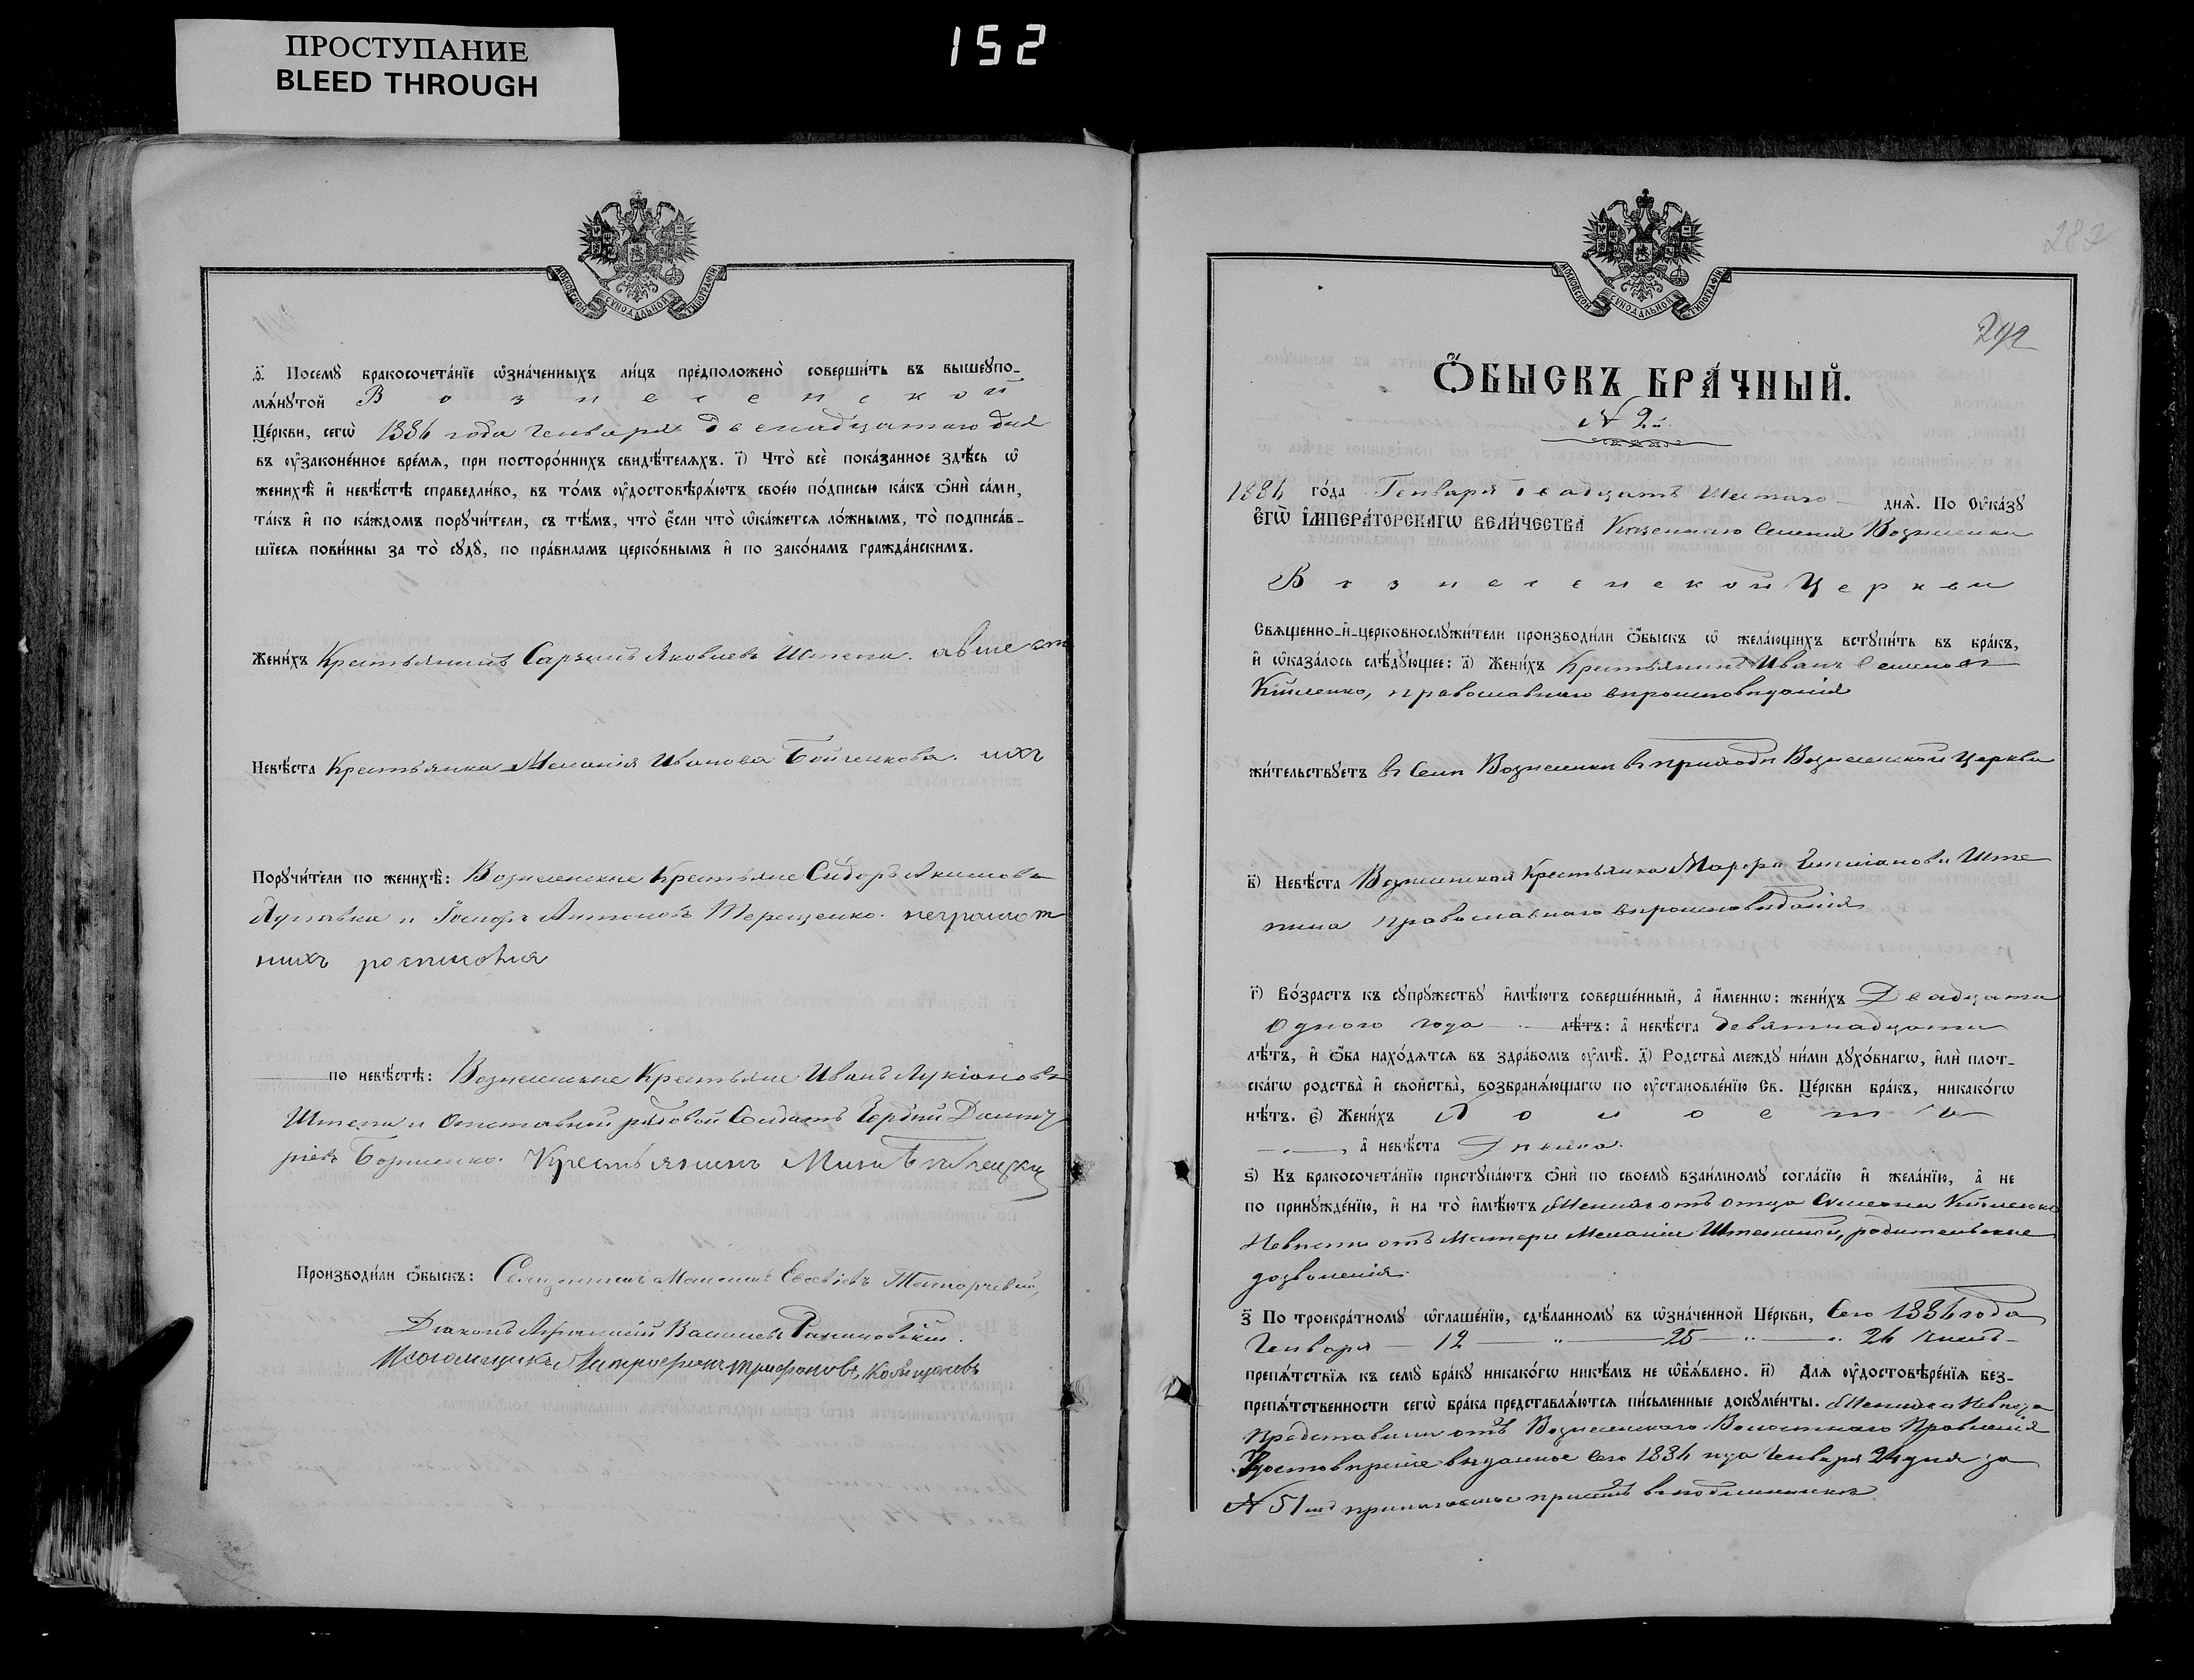 ПРОСТУПАНИЕ
BLEED THROUGH
152
МОСКОВСКОЙ СѴНОДАЛЬНОЙ ТИПОГРАФІИ
ѳ҃. Посемꙋ бракосочета́нїе ѡ҆зна́ченныхъ ли́цъ предположено̀ соверши́ть въ вышеꙋпо-
мѧ́нꙋтой Вознесенской
Це́ркви, сегѡ̀ 1884 года Генваря двенадцатаго дня
въ ᲂу҆законе́нное вре́мѧ, при посторо́ннихъ свидѣ́телѧхъ. і҃) Что̀ всѐ пока́занное здѣ́сь ѡ҆
женихѣ̀ и҆ невѣ́стѣ справедли́во, въ то́мъ ᲂу҆достовѣрѧ́ютъ свое́ю по́дписью ка́къ ѻ҆нѝ са́ми,
та́къ и҆ по ка́ждомъ порꙋчи́тели, съ тѣ́мъ, что̀ є҆́сли что̀ ѡ҆ка́жетсѧ ло́жнымъ, то̀ подписа́в-
шїесѧ пови́нны за то̀ сꙋдꙋ̀, по пра́виламъ церко́внымъ и҆ по зако́намъ гражда́нскимъ.
Жени́хъ Крестьянинъ Яковлевъ Штепа. авместо
Невѣ́ста Крестьянка Меланія Иванова Бойченкова. ихъ
Порꙋчи́тели по женихѣ̀: Вознесенские Крестьяне Сидоръ Акимовъ
и Іосифъ Антоновъ Терещенко. неграмот
нихъ росписолся
по невѣ́стѣ: Вознесенские Крестьяне Иванъ Лукіановъ
Штепа и отставной рядовой Солдатъ Гордій Дмит
ріевъ Борисенко. Крестьянинъ
Производи́ли ѻ҆́быскъ: Священникъ Максимъ
Діаконъ Василиевъ
Псаломщикъ Митрофанъ Трифоновъ
282
292
МОСКОВСКОЙ СѴНОДАЛЬНОЙ ТИПОГРАФІИ
Ѻ҆́БЫСКЪ БРА́ЧНЫЙ.
N 2й.
1884 го́да Генваря двадцать Шестаго днѧ̀. По Оу҆ка́зꙋ
Є҆ГѠ̀ И҆МПЕРА́ТОРСКАГѠ ВЕЛИ́ЧЕСТВА Казенного Селения Вознесенки
Вознесенской Церкви
Свѧщенно-и҆-церковнослꙋжи́тели производи́ли ѻ҆́быскъ ѡ҆ жела́ющихъ встꙋпи́ть въ бра́къ,
и҆ ѡ҆каза́лось слѣ́дꙋющее: а҃) Жени́хъ Крестьянинъ Иванъ Семеновъ
православнаго вероисповеданія
жи́тельствꙋетъ в Селе Вознесенки в приходе Вознесенской Церкви
в҃) Невѣ́ста Вознесенская Крестьянка Марфа Ште
пина православнаго вероисповеданія
г҃) Во́зрастъ къ сꙋпрꙋ́жествꙋ и҆мѣ́ютъ соверше́нный, а҆ и҆́меннѡ: жени́хъ Двадцати
одного года лѣ́тъ: а҆ невѣ́ста девятнадцати
лѣ́тъ, и҆ ѻ҆́ба нахо́дѧтсѧ въ здра́вомъ ᲂу҆мѣ̀. д҃) Родства̀ междꙋ ни́ми дꙋхо́внагѡ, и҆лѝ плот-
ска́гѡ родства̀ и҆ сво́йства, возбранѧ́ющагѡ по ᲂу҆становле́нїю Св. Це́ркви бра́къ, никако́гѡ
нѣ́тъ. є҃) Жени́хъ Холостъ
, а҆ невѣ́ста Девица.
ѕ҃) Къ бракосочета́нїю пристꙋпа́ютъ ѻ҆нѝ по своемꙋ̀ взаи́мномꙋ согла́сїю и҆ жела́нїю, а҆ не
по принꙋжде́нїю, и҆ на то̀ и҆мѣ́ютъ Жених отъ отца
Невеста отъ Матери Меланіи Штепиной, родительские
дозволенія.
з҃ По троекра́тномꙋ ѡ҆глаше́нїю, сдѣ́ланномꙋ въ ѡ҆зна́ченной Це́ркви, Сего 1884 года
Генваря 12 " 25 " 26 числъ
препѧ́тствїѧ къ семꙋ̀ бра́кꙋ никако́гѡ никѣ́мъ не ѡ҆б̾ѧ́влено. и҃) Длѧ ᲂу҆достовѣре́нїѧ без-
препѧ́тственности сегѡ̀ бра́ка представлѧ́ютсѧ пи́сьменные докꙋме́нты. Жених и Невеста
представили отъ Вознесенскаго Волостнаго Правленія
Удостоверение выданное сего 1884 года Генваря 24 дня за
N 51